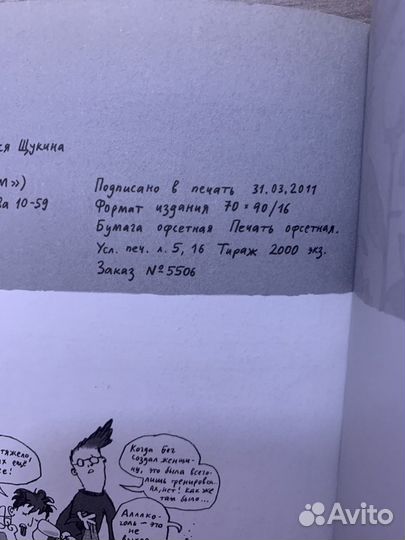 ся Щукина
м»)
ва 10-59
Подписано в печать 31.03.2011
Формат издания 70 × 90/16
Бумага офсетная Печать офсетная.
Усл. печ. л. 5, 16 Тираж 2000 экз.
Заказ №5506
тяжело,
их ещё
е!
Когда Бог
создал женщи-
ну, это была всего-
лишь тренировка
как же
там было...
Алллко-
голь — это
не
Avito